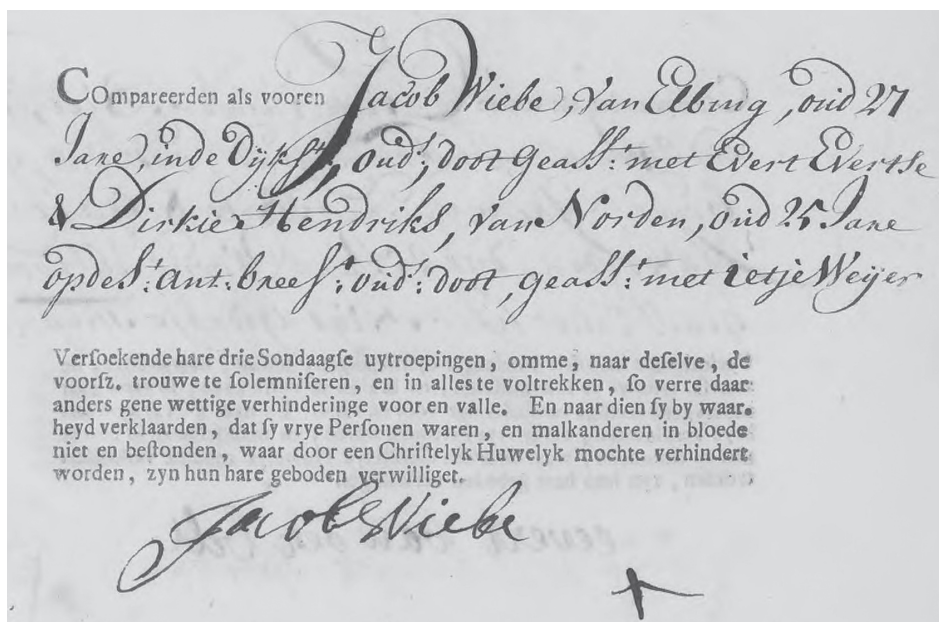 COmpareerden als vooren Jacob Wiebe, van Elbing, oud 27
Jare, in de Dijkst:, oud.s doot geass:t met Evert Evertse
& Dirkie Hendriks, van Norden, oud 25 Jare
op de St: Ant: breest: oud.s doot, geass:t met ietje Weijer
Versoekende hare drie Sondaagse uytroepingen, omme, naar deselve, de
voorsz. trouwe te solemniseren, en in alles te voltrekken, so verre daar
anders gene wettige verhinderinge voor en valle. En naar dien sy by waar-
heyd verklaarden, dat sy vrye Personen waren, en malkanderen in bloede
niet en bestonden, waar door een Christelyk Huwelyk mochte verhindert
worden, zyn hun hare geboden verwilliget.
Jacob Wiebe